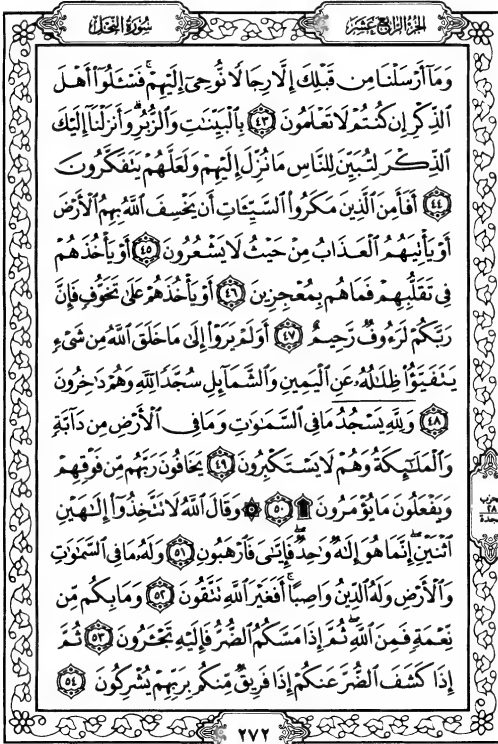 الجزء الرابع عشر
سورة النحل
وَمَآ أَرْسَلْنَا مِن قَبْلِكَ إِلَّا رِجَالًا نُّوحِىٓ إِلَيْهِمْ ۚ فَسْـَٔلُوٓا۟ أَهْلَ
ٱلذِّكْرِ إِن كُنتُمْ لَا تَعْلَمُونَ ٤٣ بِٱلْبَيِّنَـٰتِ وَٱلزُّبُرِ ۗ وَأَنزَلْنَآ إِلَيْكَ
ٱلذِّكْرَ لِتُبَيِّنَ لِلنَّاسِ مَا نُزِّلَ إِلَيْهِمْ وَلَعَلَّهُمْ يَتَفَكَّرُونَ
٤٤ أَفَأَمِنَ ٱلَّذِينَ مَكَرُوا۟ ٱلسَّيِّـَٔاتِ أَن يَخْسِفَ ٱللَّهُ بِهِمُ ٱلْأَرْضَ
أَوْ يَأْتِيَهُمُ ٱلْعَذَابُ مِنْ حَيْثُ لَا يَشْعُرُونَ ٤٥ أَوْ يَأْخُذَهُمْ
فِى تَقَلُّبِهِمْ فَمَا هُم بِمُعْجِزِينَ ٤٦ أَوْ يَأْخُذَهُمْ عَلَىٰ تَخَوُّفٍ فَإِنَّ
رَبَّكُمْ لَرَءُوفٌ رَّحِيمٌ ٤٧ أَوَلَمْ يَرَوْا۟ إِلَىٰ مَا خَلَقَ ٱللَّهُ مِن شَىْءٍ
يَتَفَيَّؤُا۟ ظِلَـٰلُهُۥ عَنِ ٱلْيَمِينِ وَٱلشَّمَآئِلِ سُجَّدًا لِّلَّهِ وَهُمْ دَٰخِرُونَ
٤٨ وَلِلَّهِ يَسْجُدُ مَا فِى ٱلسَّمَـٰوَٰتِ وَمَا فِى ٱلْأَرْضِ مِن دَآبَّةٍ
وَٱلْمَلَـٰٓئِكَةُ وَهُمْ لَا يَسْتَكْبِرُونَ ٤٩ يَخَافُونَ رَبَّهُم مِّن فَوْقِهِمْ
وَيَفْعَلُونَ مَا يُؤْمَرُونَ ۩ ٥٠ ۞ وَقَالَ ٱللَّهُ لَا تَتَّخِذُوٓا۟ إِلَـٰهَيْنِ
ٱثْنَيْنِ ۖ إِنَّمَا هُوَ إِلَـٰهٌ وَٰحِدٌ ۖ فَإِيَّـٰىَ فَٱرْهَبُونِ ٥١ وَلَهُۥ مَا فِى ٱلسَّمَـٰوَٰتِ
وَٱلْأَرْضِ وَلَهُ ٱلدِّينُ وَاصِبًا ۚ أَفَغَيْرَ ٱللَّهِ تَتَّقُونَ ٥٢ وَمَا بِكُم مِّن
نِّعْمَةٍ فَمِنَ ٱللَّهِ ۖ ثُمَّ إِذَا مَسَّكُمُ ٱلضُّرُّ فَإِلَيْهِ تَجْـَٔرُونَ ٥٣ ثُمَّ
إِذَا كَشَفَ ٱلضُّرَّ عَنكُمْ إِذَا فَرِيقٌ مِّنكُم بِرَبِّهِمْ يُشْرِكُونَ ٥٤
حزب
٢٨
٢٧٢